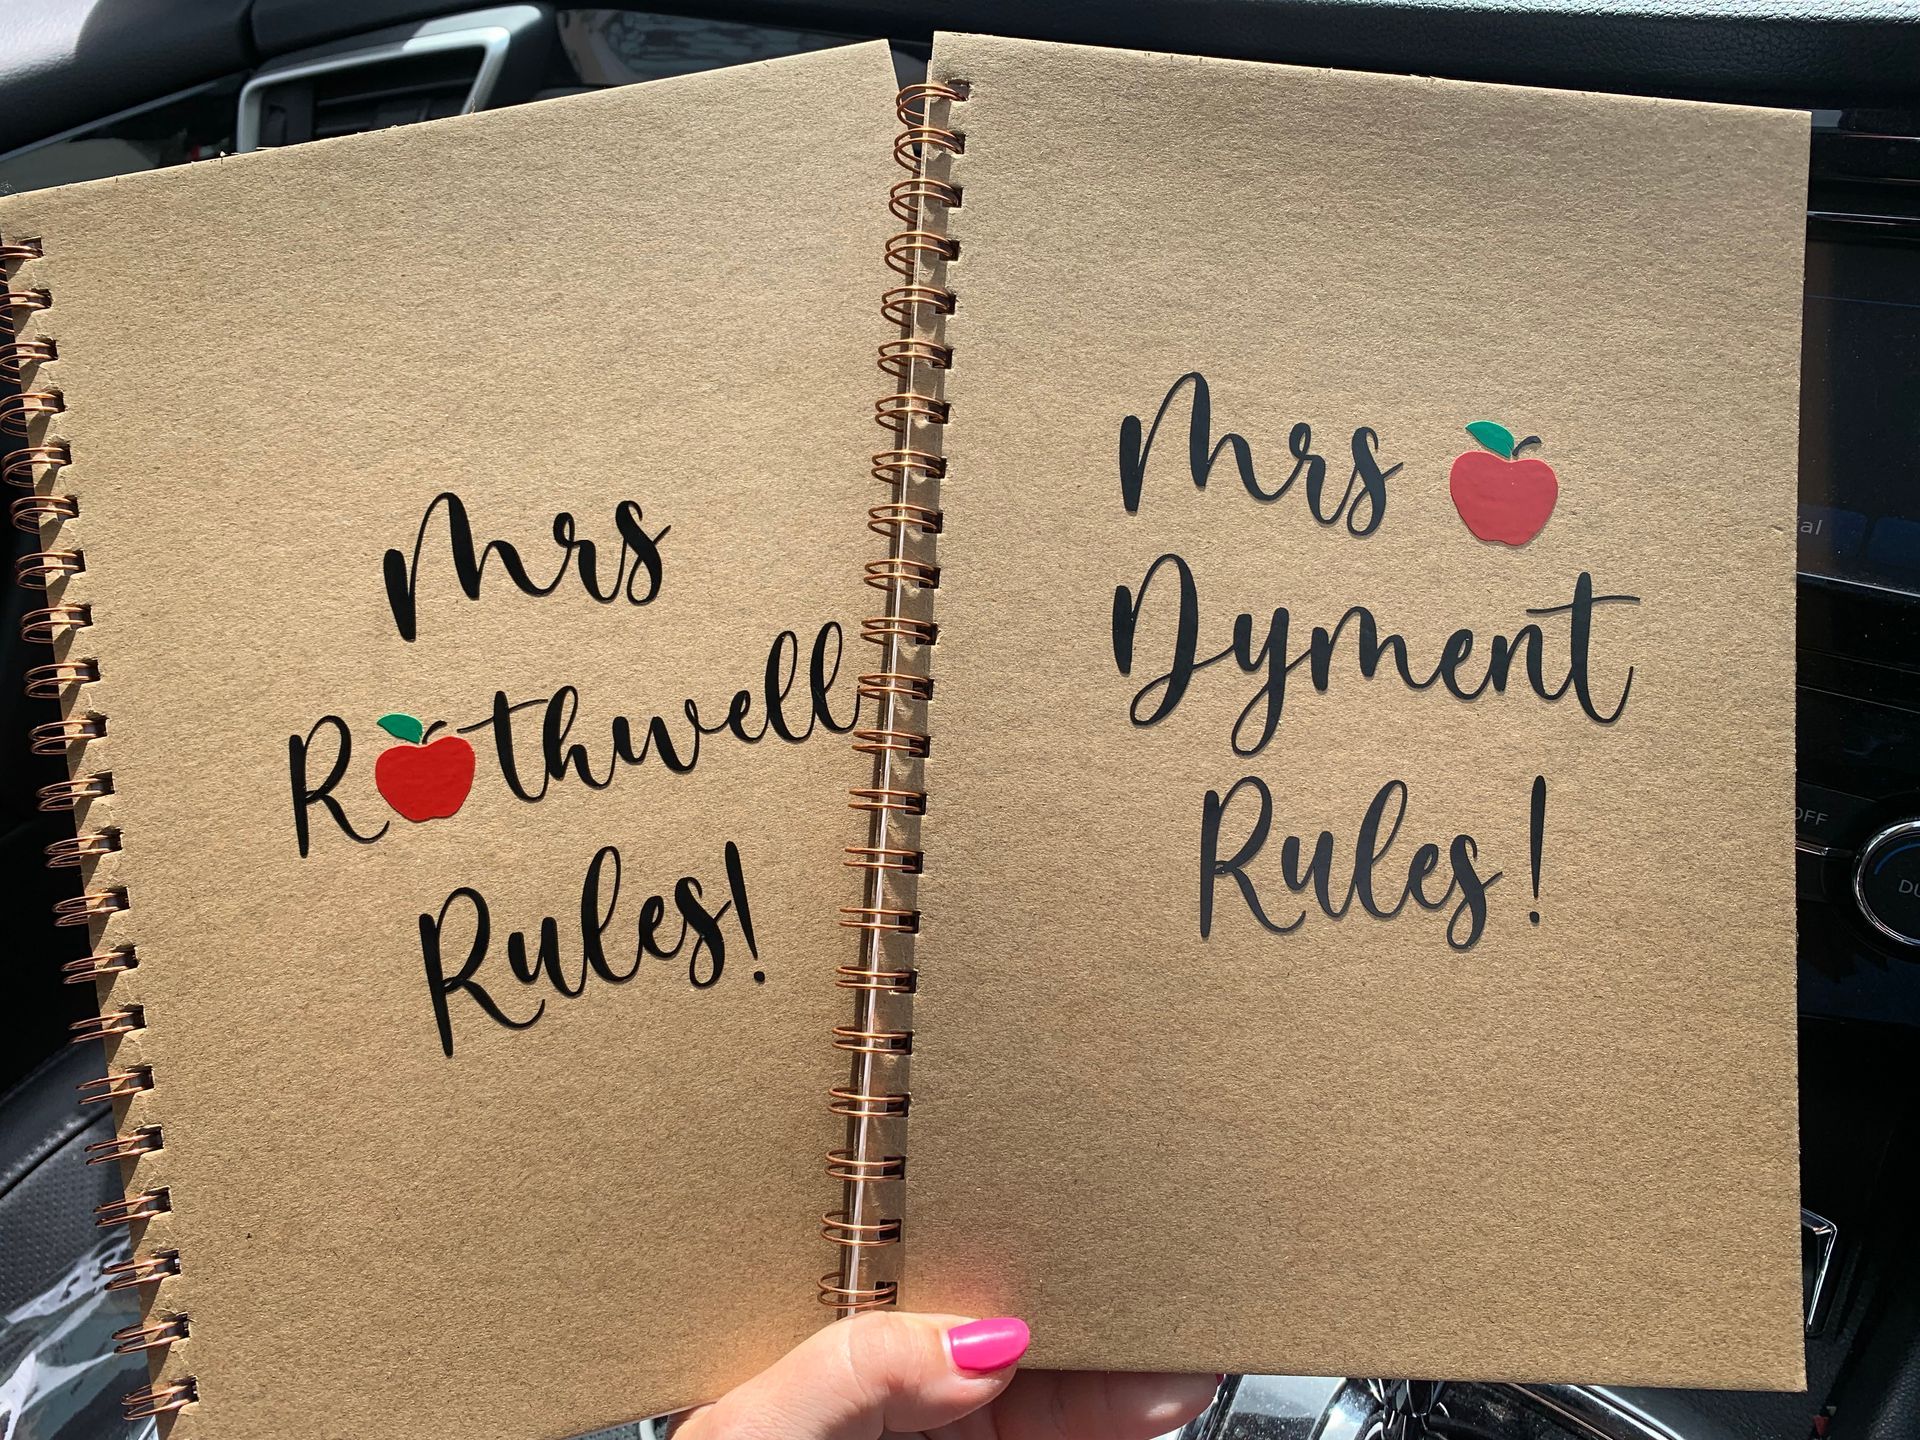 Mrs
Rothwell
Rules!
Mrs
Dyment
Rules!
OFF